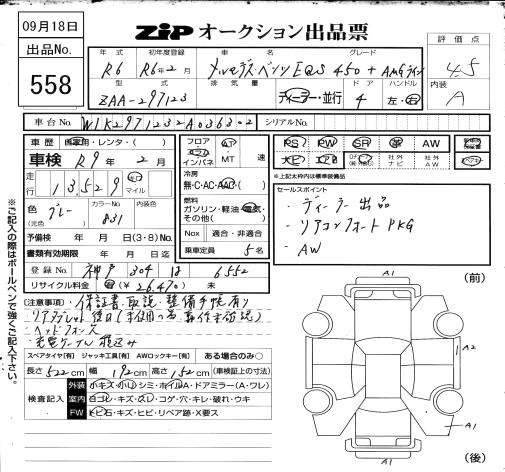 09月18日
ZiP オークション出品票
出品No.
558
年式 初年度登録 車名 グレード
R6 R6年2月 メルセデス・ベンツ EQS 450+ AMGライン
評価点
4.5
型式 排気量 ドア ハンドル
ZAA-297123 ディーラー・並行 4 左・右
内装
A
車台No. W1K2971232A036302 シリアルNo.
車歴 自家用・レンタ・( )
車検 R9年2月
走行 13,529 km マイル
色 グレー (元色) カラーNo. 831 内装色
予備検 年 月 日(3・8)No.
書類有効期限 年 月 日迄
登録No. 神戸 304 は 6552
リサイクル料金 (¥26,470) 未
フロア コラム インパネ AT MT 速
冷房 無・C・AC・AAC・( )
燃料 ガソリン・軽油・電気・その他( )
Nox 適合・非適合
乗車定員 5名
PS PW SR 革 AW
ナビ エアB 社外ナビ 社外AW
※上記太枠内は標準装備品
セールスポイント
・ディーラー出品
・リアコンフォートPKG
・AW
(注意事項)・保証書・取説・整備手帳有り
・リアタブレット後日(未使用の為動作未確認)
・ヘッドフォンス
・充電ケーブル積込み
スペアタイヤ[有] ジャッキ工具[有] AWロックキー[有] ある場合のみ○
長さ 522cm 幅 192cm 高さ 152cm (車検証上の寸法)
検査記入
外装 小キズ・小凹・シミ・ホイルA・ドアミラー(A・ワレ)
室内 ヨゴレ・キズ・スレ・コゲ・穴・キレ・破れ・ウキ
FW トビ石・キズ・ヒビ・リペア跡・X要ス
※ご記入の際はボールペンで強くご記入下さい。
A1
(前)
A2
A1
A1
(後)